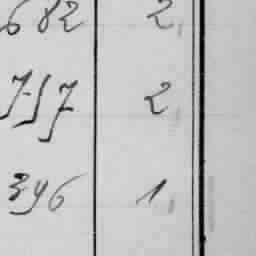 682 2
757 2
396 1